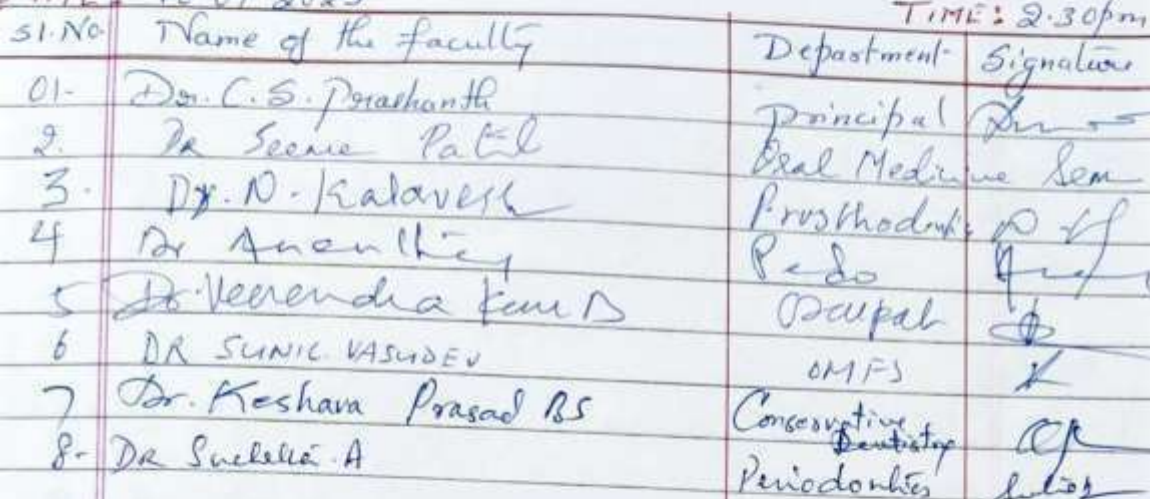 TIME: 2.30pm
Sl.No Name of the faculty Department Signature
01- Dr. C.S. Prashanth Principal
2. Dr Seema Patil Oral Medicine
3. Dr. N. Kalavathy Prosthodontics
4 Dr Ananthraj Pedo
5 Dr. Veerendra Kumar B Oralpath
6 DR SUNIL VASUDEV OMFS
7 Dr. Keshava Prasad BS Conservative Dentistry
8- DR Suchetha A Periodontics